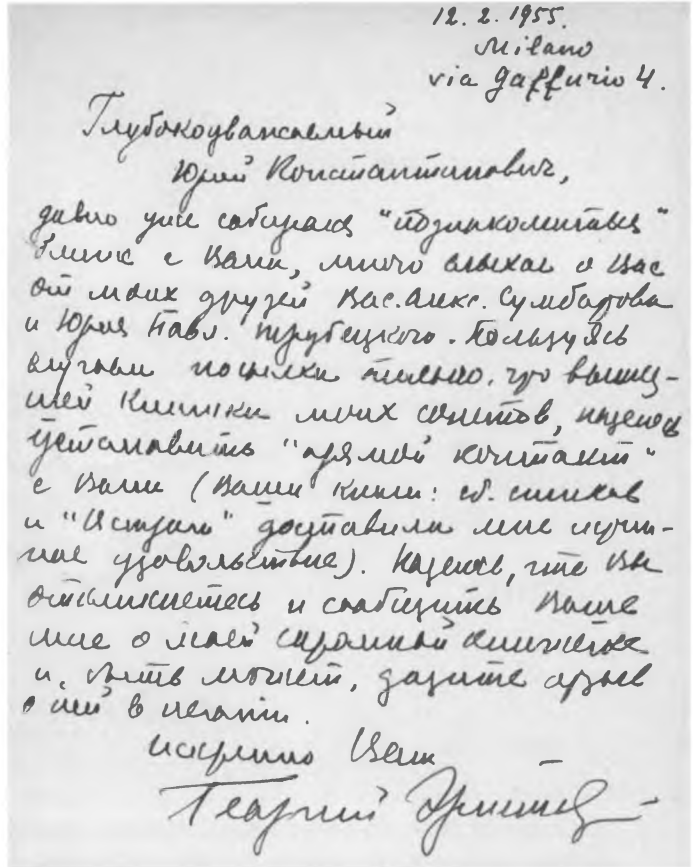 12. 2. 1955.
Milano
via Gaffurio 4.
Глубокоуважаемый
Юрий Константинович,
давно уже собираюсь "познакомиться"
ближе с Вами, много слыхал о Вас
от моих друзей Вас. Алекс. Сумбатова
и Юрия Павл. Трубецкого. Пользуясь
случаем посылки только что вышед-
шей книжки моих сонетов, надеюсь
установить "прямой контакт"
с Вами (Ваши книги: сб. стихов
и "доставили мне
удовольствие). Надеюсь, что Вы
откликнетесь и сообщить Ваше
мне о моей скромной книжечке
и, быть может, дадите отзыв
о ней в печати.
Искренно Ваш
Георгий